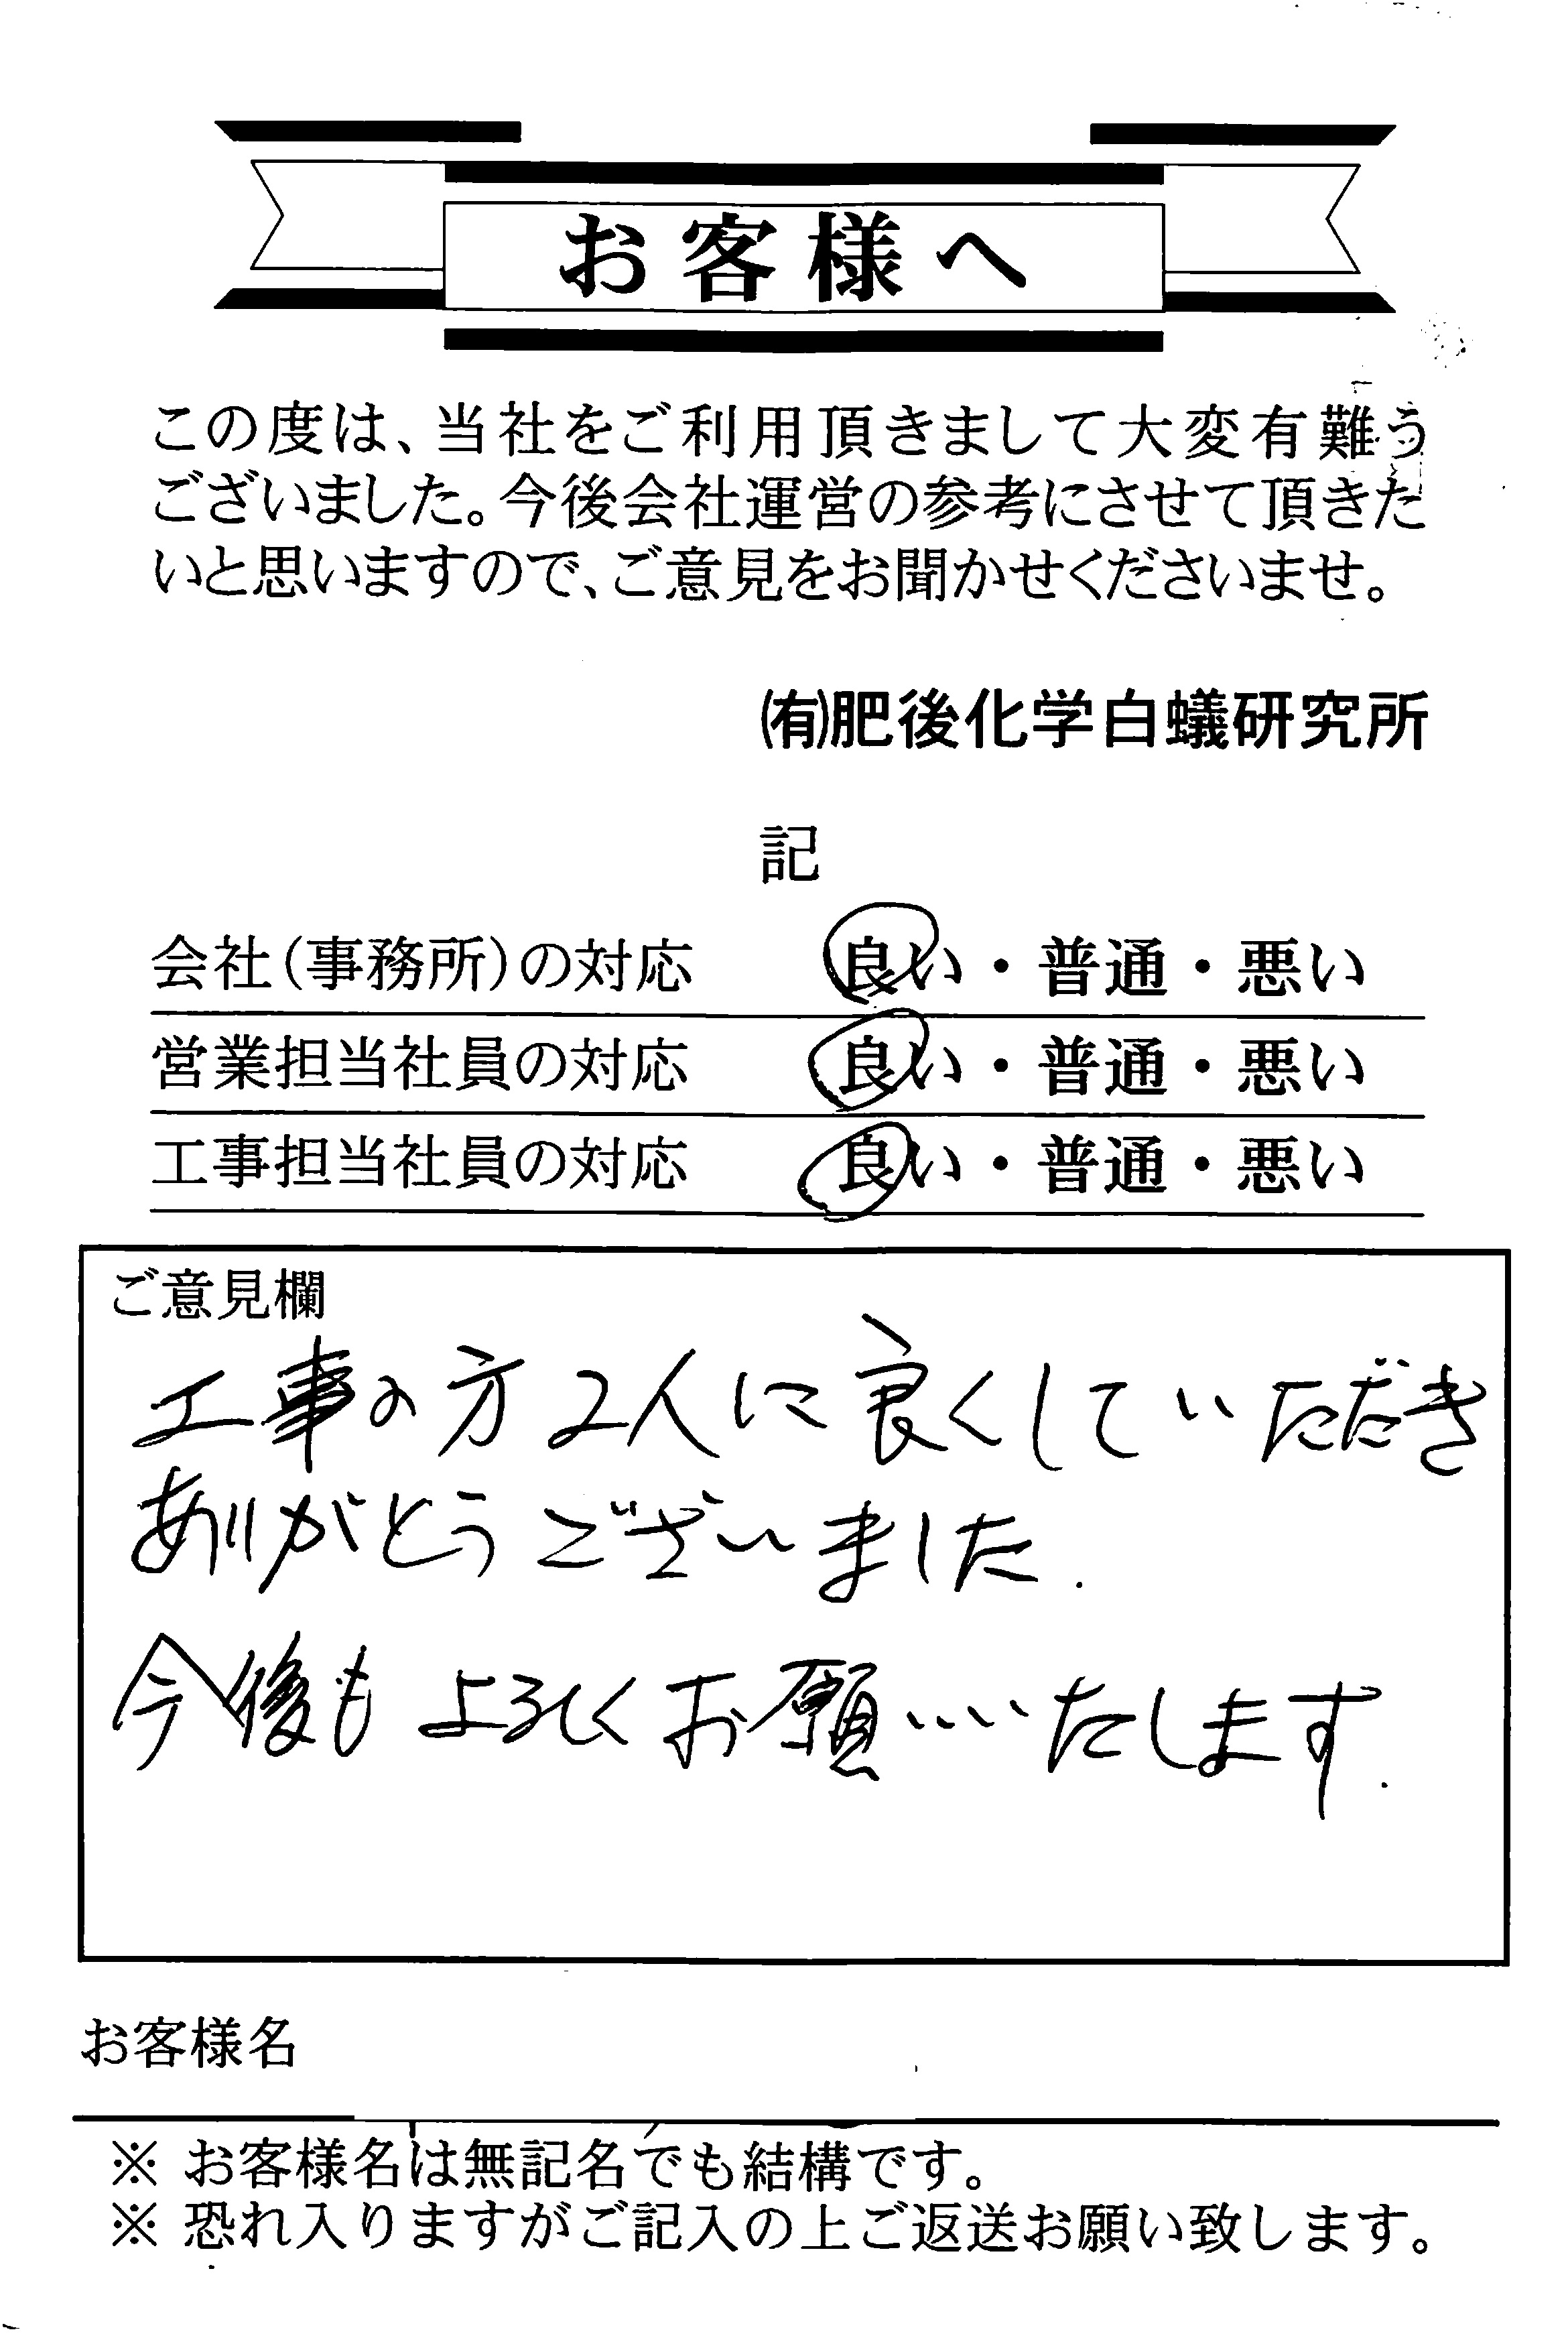 お客様へ
この度は、当社をご利用頂きまして大変有難う
ございました。今後会社運営の参考にさせて頂きた
いと思いますので、ご意見をお聞かせくださいませ。
㈲肥後化学白蟻研究所
記
会社(事務所)の対応 良い・普通・悪い
営業担当社員の対応 良い・普通・悪い
工事担当社員の対応 良い・普通・悪い
ご意見欄
工事の方2人に良くしていただき
ありがとうございました.
今後もよろしくお願いいたします.
お客様名
※ お客様名は無記名でも結構です。
※ 恐れ入りますがご記入の上ご返送お願い致します。